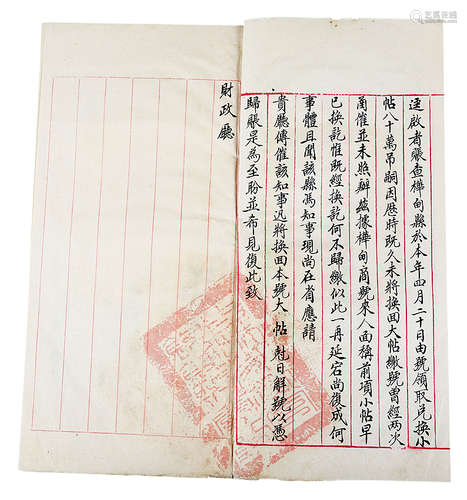 逕啟者窃查樺甸縣於本年四月二十日由號領取兑換小
帖八十萬吊嗣因歷時既久未將換回大帖繳號曾經兩次
函催並未照辦兹據樺甸商號來人面稱前項小帖早
已換訖惟既經換訖何不歸繳似此一再延宕尚復成何
事體且聞該縣馮知事現尚在省應請
貴廳傳催該知事迅將換回本號大帖尅日解號以憑
歸賬是為至盼並布見復此致
財政廳